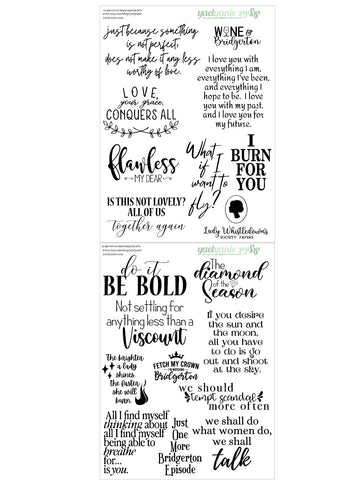 just because something
is not perfect,
does not make it any less
worthy of love.
WINE &
Bridgerton
I love you with
everything I am,
everything I've been,
and everything I
hope to be. I love
you with my past,
and I love you for
my future.
LOVE,
your grace,
CONQUERS ALL
flawless
MY DEAR
What
if I
want to
fly?
I
BURN
FOR
YOU
IS THIS NOT LOVELY?
ALL OF US
together again
Lady Whistledown's
SOCIETY PAPERS
do it
BE BOLD
The
diamond
of the
Season
Not settling for
anything less than a
Viscount
If you desire
the sun and
the moon,
all you have
to do is go
out and shoot
at the sky.
The brighter
a lady
shines,
the faster
she will
burn.
FETCH MY CROWN
Bridgerton
we should
tempt scandal
more often
All I find myself
thinking about
all I find myself
being able to
breathe
for...
is you.
Just
One
More
Bridgerton
Episode
we shall do
what women do,
we shall
talk